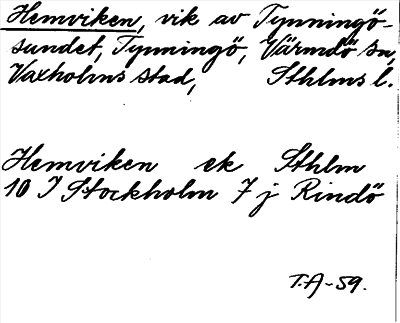 Hemviken, vik av Tynningö-
sundet, Tynningö, Värmdö sn,
Vaxholms stad, Sthlms l.
Hemviken ek Sthlm
10 I Stockholm 7 j Rindö
T.A-59.